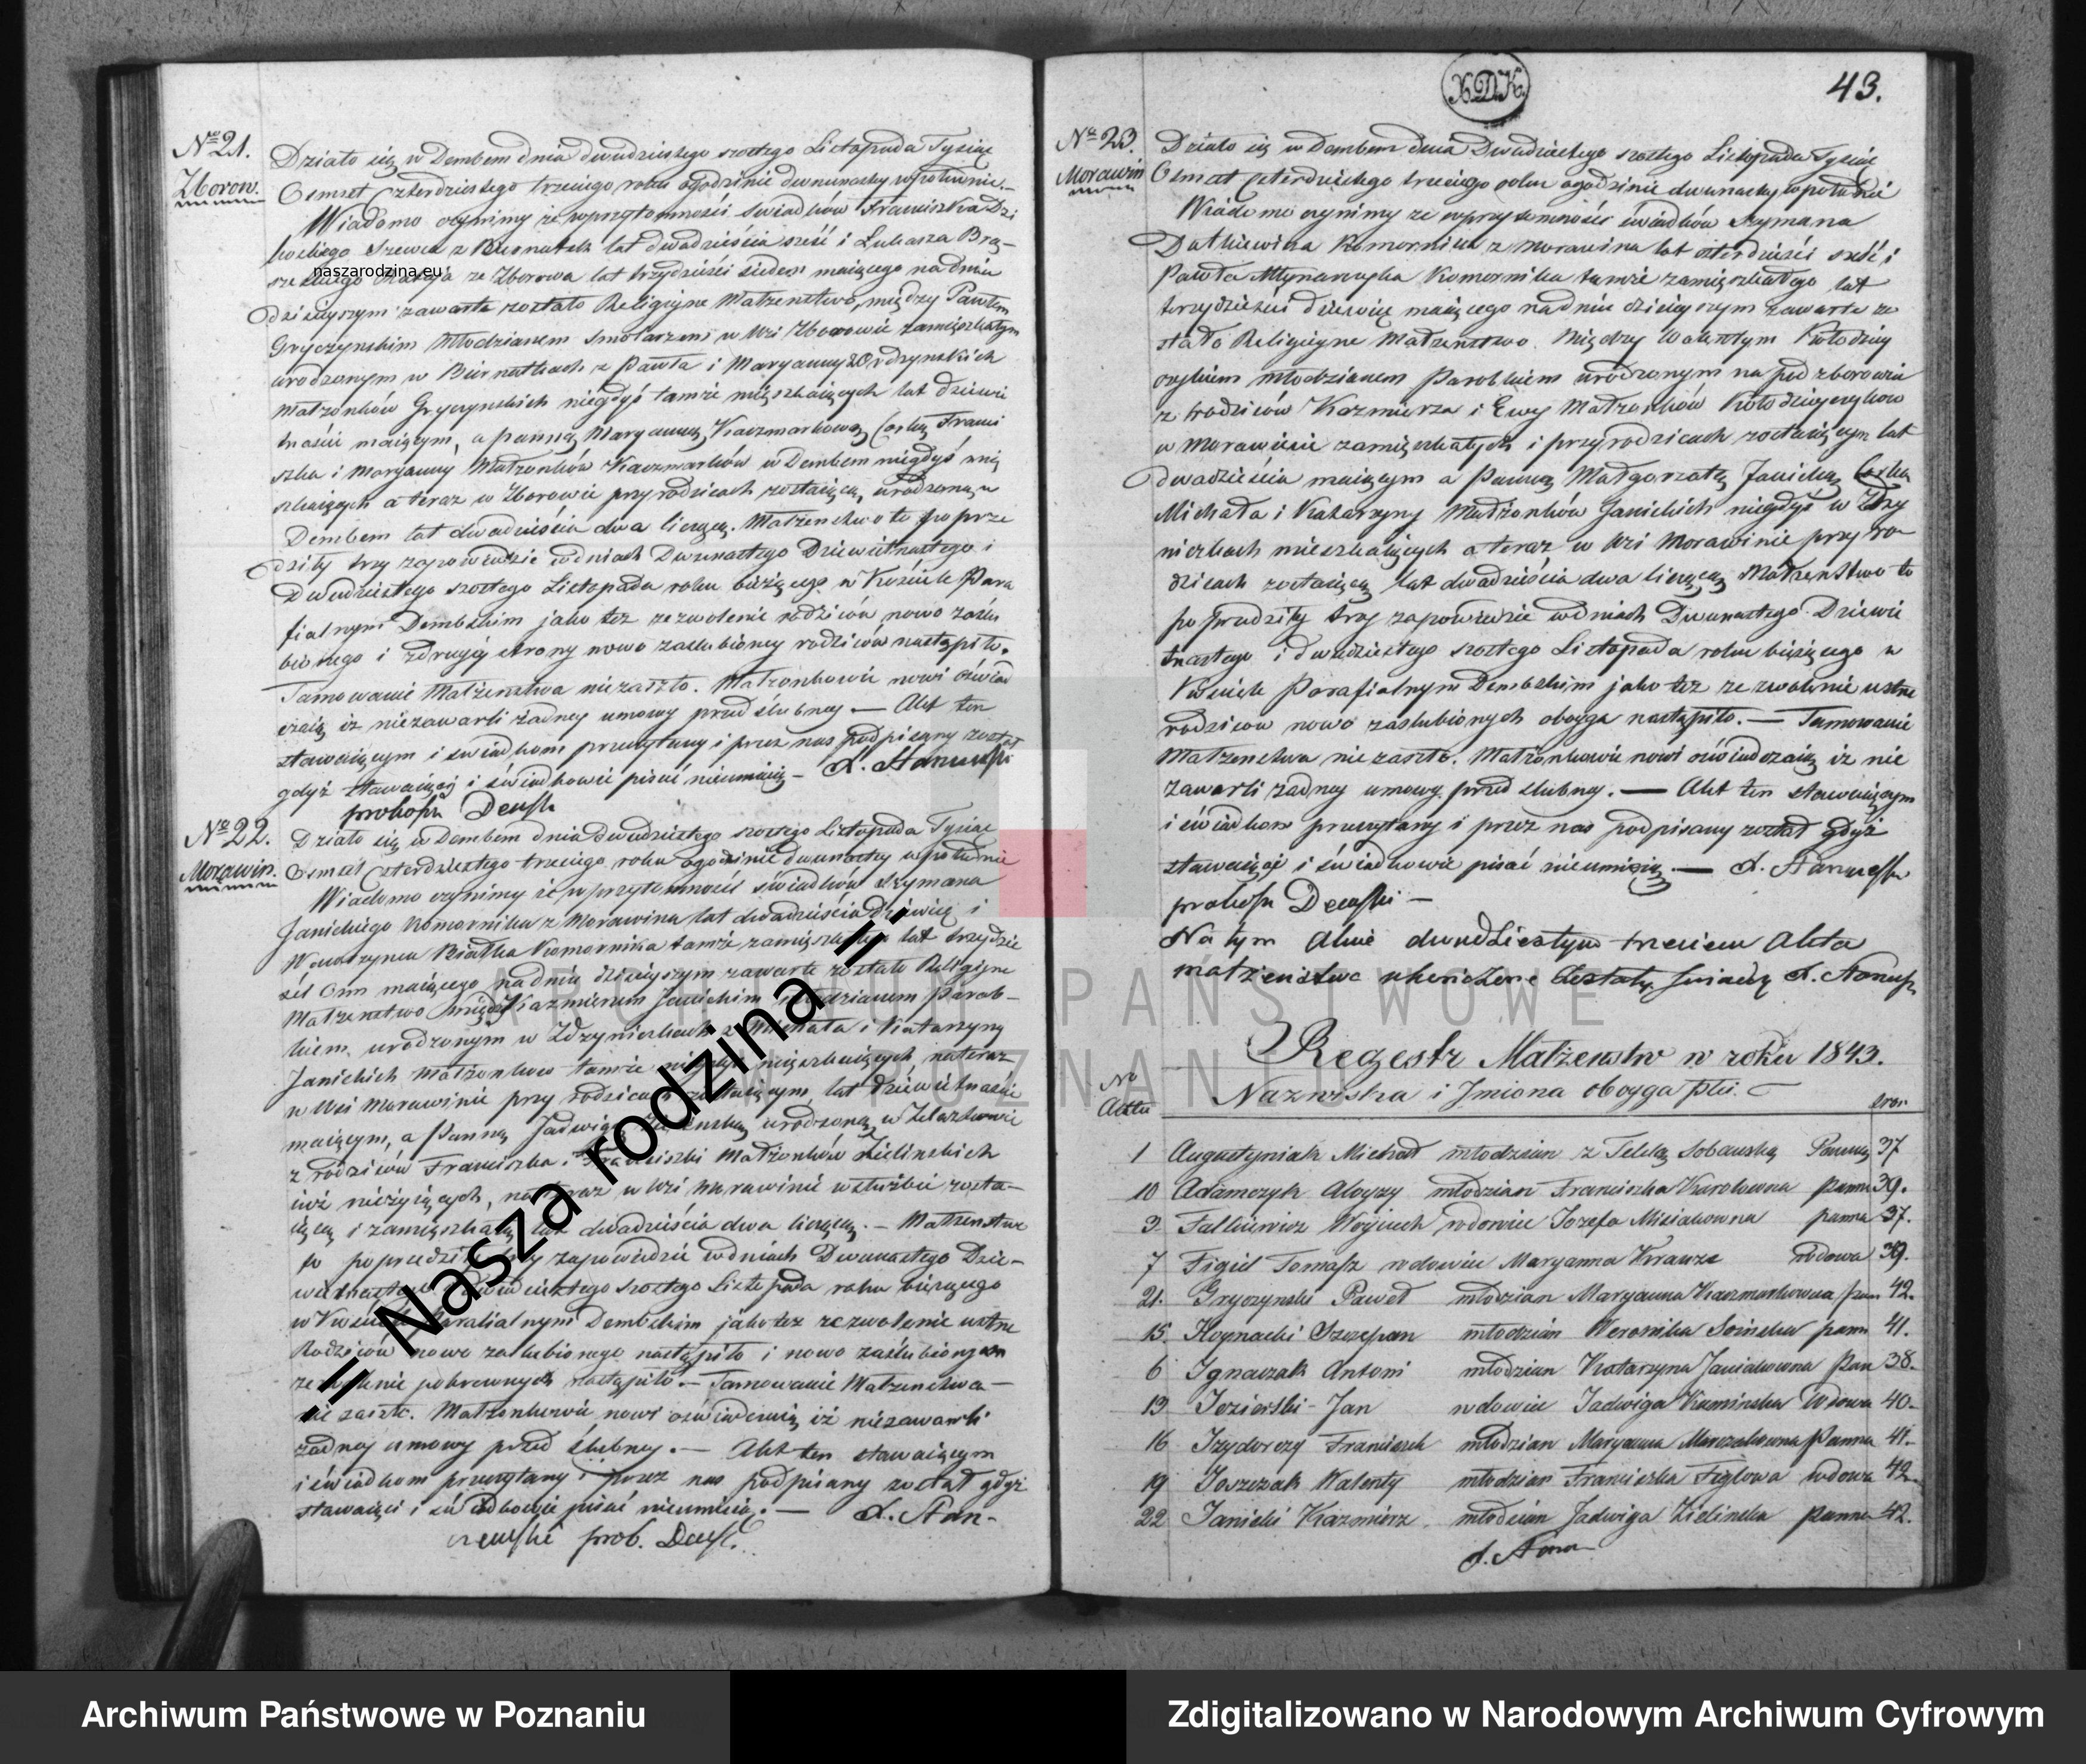 No 21.
Zborow.
Działo się w Dembem dnia dwudziestego szostego Listopada Tysiąc
Osmset Czterdziestego trzeciego roku o godzinie dwunastey w południe.–
Wiadomo czynimy że w przytomności świadków Franciszka Dzi
kockiego Szewca z lat dwadzieścia sześć i Łukasza Bra-
naszarodzina.eu
Rataja ze Zborowa lat trzydzieści siedem maiącego na dniu
dzisieyszym zawarte zostało Religiyne Małżeństwo, między Pawłem
Gryczynskim Młodzianem Smolarzem w Wsi Zborowie zamięszkałym
urodzonym w Biernatkach z Pawła i Maryanny
Małżonków Gryczynskich niegdyś tamże mięszkaiących lat dziewię
tnaście maiącym, a panną Maryanną Kaczmarkowną Corką Franci
szka i Maryanny Małżonków Kaczmarków w Dembem niegdyś mię
szkaiących a teraz w Zborowie przy rodzicach zostaiącą, urodzoną w
Dembem lat dwadzieścia dwa liczącą. Małżenstwo to poprze
dziły trzy zapowiedzie w dniach Dwunastego Dziewiętnastego i
Dwudziestego szostego Listopada roku bieżącego w Kościele Para
fialnym Dembskim jako też zezwolenie rodziców nowo zaślu
bionego i z drugiey strony nowo zaslubioney rodziców nastąpiło.
Tamowanie Małżenstwa niezaszło. Małżonkowie nowi oświad
czaią iż niezawarli żadney umowy przed ślubney — Akt ten
stawaiącym i świadkom przeczytany i przez nas podpisany został
gdyż stawaiący i świadkowie pisać nieumieią –
No 22.
Morawin.
Działo się w Dembem dnia dwudziestego szostego Listopada Tysiąc
Osmset Czterdziestego trzeciego roku o godzinie dwunastey w południe
Wiadomo czynimy że w przytomności świadków Szymana
Janickiego Komornika z Morawina lat dwadzieścia dziewięć i
Wawrzynca Białka Komornika tamże zamięszkałego lat trzydzie
ści Osm maiącego na dniu dzisieyszym zawarte zostało Religiyne
Małżenstwo między Kazmierzem Janickim młodzianem Parob-
kiem urodzonym w Zdzynickach z Michała i Katarzyny
Janickich Małżonkow tamże niegdyś mięszkaiących na teraz
w Wsi Morawinie przy rodzicach zostaiącym, lat dziewiętnaście
maiącym, a Panną Jadwigą Zielinską urodzoną w Żelazkowie
z rodziców Franciszka i Franciszki Małżonków Zielinskich
iuż nieżyiących, na teraz w Wsi Morawinie w służbie zosta-
iącą i zamięszkałą lat dwadzieścia dwa liczącą. – Małżenstwo
to poprzedziły trzy zapowiedzie w dniach Dwunastego Dzie-
więtnastego i Dwudziestego szostego Listopada roku bieżącego
w Kościele Parafialnym Dembskim jako też zezwolenie ustne
Rodziców nowo zaslubionego nastąpiło i nowo zaślubioney
zezwolenie pokrewnych nastąpiło. – Tamowanie Małżenstwa –
nie zaszło. Małżonkowie nowi oświadczaią iż niezawarli
żadney umowy przed ślubney. – Akt ten stawaiącym
i świadkom przeczytany i przez nas podpisany został gdyż
stawaiący i świadkowie pisać nieumieią. —
-= Nasza rodzina =-
XDK.
43.
No 23.
Morawin
Działo się w Dembem dnia Dwudziestego szostego Listopada Tysiąc
Osmset Czterdziestego trzeciego roku o godzinie dwunastey w południe
Wiadomo czynimy ze w przytomności świadków Szymana
Dutkiewicza Komornika z Morawina lat czterdzieści sześć i
Pawła Młynarczyka Komornika tamże zamięszkałego lat
trzydzieści dziewięć maiącego na dniu dzisieyszym zawarte zo
stało Religiyne Małżenstwo Między Walentym Kołodziey
czykiem młodzianem Parobkiem urodzonym na pod zborowiu
z rodziców Kazmierza i Ewy Małżonków Kołodzieyczykow
w Morawinie zamięszkałych i przy rodzicach zostaiącym lat
dwadzieścia maiącym a Panną Małgorzatą Janicką Corką
Michała i Katarzyny Małżonków Janickich niegdyś w Zdzy
nickach mieszkaiących a teraz w Wsi Morawinie przy ro
dzicach zostaiącą lat dwadzieścia dwa liczącą Małżenstwo to
poprzedziły trzy zapowiedzie w dniach Dwunastego Dziewię
tnastego i dwudziestego szostego Listopada roku bieżącego w
Kościele Parafialnym Dembskim jako też zezwolenie ustne
rodzicow nowo zaslubionych oboyga nastąpiło. — Tamowanie
Małżenstwa nie zaszło. Małżonkowie nowi oświadczaią iż nie
zawarli żadney umowy przed slubney. — Akt ten stawaiącym
i świadkom przeczytany i przez nas podpisany został gdyż
stawaiący i świadkowie pisać nieumieią. —
Na tym dwudziestym trzeciem Akta
małżenstwa ukończone zostały
Regestr Małżenstw w roku 1843.
No Aktu
Nazwiska i Jmiona oboyga płci.
stron
1 Augustyniak Michał młodzian z Teklą Sobanską Panną 37
10 Adamczyk Aloyzy młodzian Franciszka Karolowna panna 39.
3 Falkiewicz Woyciech wdowiec Jozefa Misiakowna panna 37.
7 Figiel Tomasz wdowiec Maryanna Krauze wdowa 39.
21. Gryczynski Paweł młodzian Maryanna Kaczmarkowna pan 42.
15 Szczepan młodzian Weronika panna 41.
6 Ignaczak Antoni młodzian Katarzyna Janiakowna Pan 38.
13 Jezierski Jan wdowiec Jadwiga Kaminska Wdowa 40.
16 Izydorczyk Franciszek młodzian Maryanna Panna 41.
19 Joszczak Walenty młodzian Franciszka Figlowa wdowa 42.
22 Janicki Kazmierz młodzian Jadwiga Zielinska panna 42.
ARCHIWUM PAŃSTWOWE
W POZNANIU
Archiwum Państwowe w Poznaniu
Zdigitalizowano w Narodowym Archiwum Cyfrowym